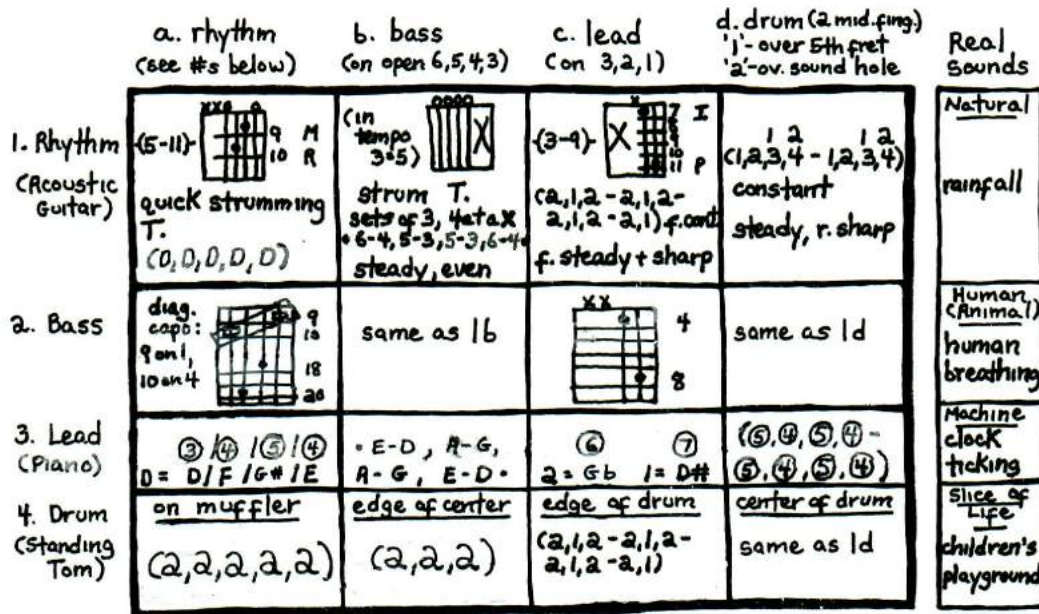 a. rhythm
(see #s below)
b. bass
(on open 6,5,4,3)
c. lead
(on 3,2,1)
d. drum (2 mid.fing.)
'1'-over 5th fret
'2'-ov. sound hole
Real
Sounds
1. Rhythm
(Acoustic
Guitar)
(5-11)
xx
9 M
10 R
quick strumming
T.
(D, D, D, D, D)
(in
tempo
3=5)
0000
X
strum T.
sets of 3, 4 at a x
• 6-4, 5-3, 5-3, 6-4 •
steady, even
(3-9)
X
x
7 I
10
11 P
(2,1,2 - 2,1,2-
2,1,2 - 2,1) f. cont
f. steady + sharp
1 2 1 2
(1,2,3,4 - 1,2,3,4)
constant
steady, r. sharp
Natural
rainfall
2. Bass
diag.
capo:
9 on 1,
10 on 4
9
10
18
20
same as 1b
XX
4
8
same as 1d
Human,
(Animal)
human
breathing
3. Lead
(Piano)
3 / 4 / 5 / 4
D = D / F / G# / E
• E-D, A-G,
A-G, E-D •
6 7
2 = Gb 1 = D#
(5, 4, 5, 4 -
5, 4, 5, 4)
Machine
clock
ticking
4. Drum
(Standing
Tom)
on muffler
(2,2,2,2,2)
edge of center
(2,2,2)
edge of drum
(2,1,2 - 2,1,2-
2,1,2 - 2,1)
center of drum
same as 1d
Slice of
Life
children's
playground